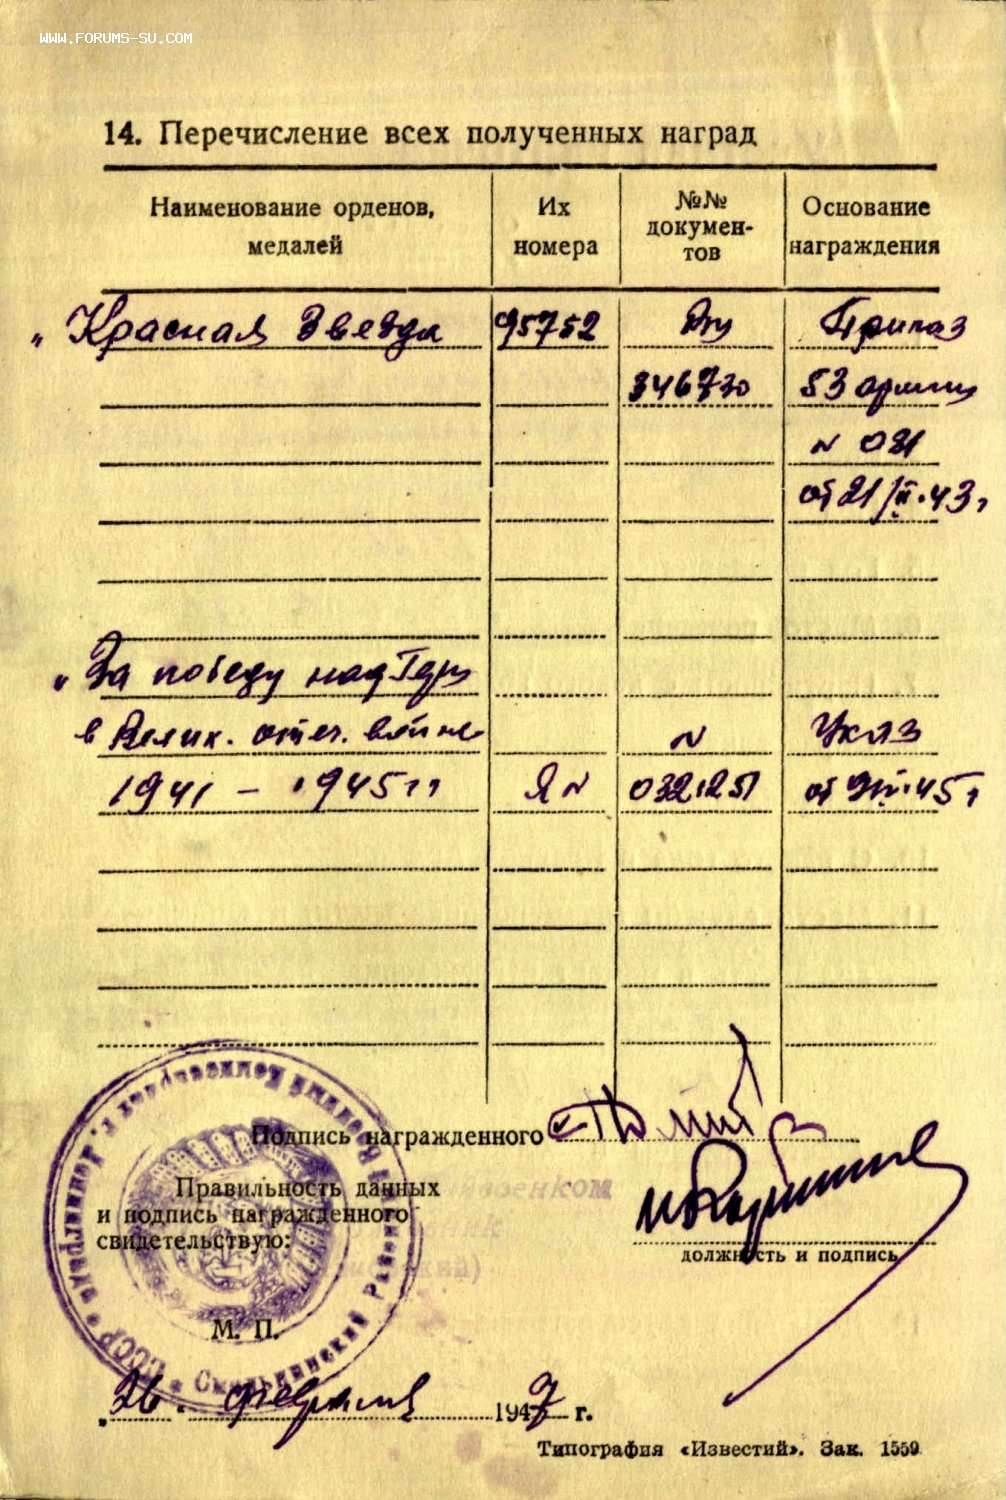 WWW.FORUMS-SU.COM
14. Перечисление всех полученных наград
Наименование орденов, медалей
Их номера
№№ докумен-тов
Основание награждения
„Красная Звезда 95752 Приказ
346730 53 армии
N 021
от 21/II.43г
„За победу над Герм
в Велик. отеч. войне N Указ
1941 – 1945гг ЯN 0321251 от 9/V.45г
Подпись награжденного
Правильность данных
и подпись награжденного
свидетельствую:
должность и подпись
М. П.
СССР * Смольнинский Район
Военный Комиссариат г. Ленинграда
„26“ февраля 1947 г.
Типография «Известий». Зак. 1559